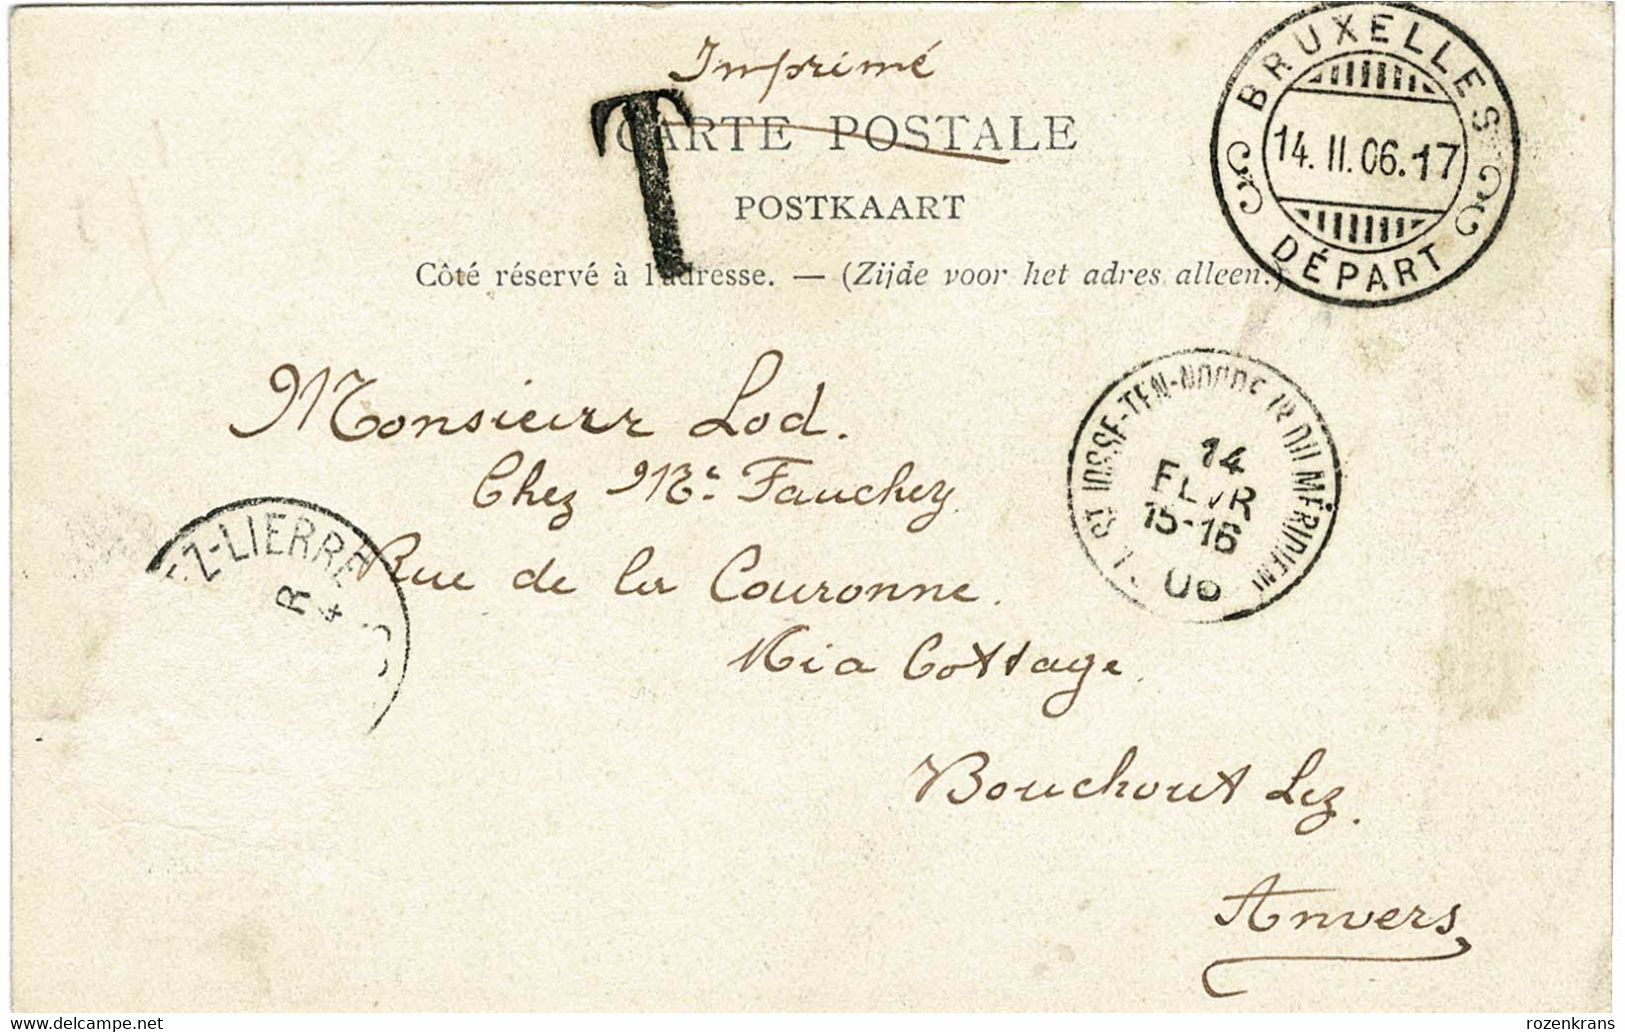 Imprimé
T
CARTE POSTALE
POSTKAART
Côté réservé à l'adresse. — (Zijde voor het adres alleen.)
BRUXELLES
14. II. 06. 17
DÉPART
Monsieur Lod.
Chez Mr. Fauchey
Rue de la Couronne.
Mia Cottage
Bouchout Lez.
Anvers
ST JOSSE-TEN-NOODE (R DU MÉRIDIEN)
14
FEVR
15-16
06
EZ-LIERRE
R
4
www.delcampe.net
rozenkrans